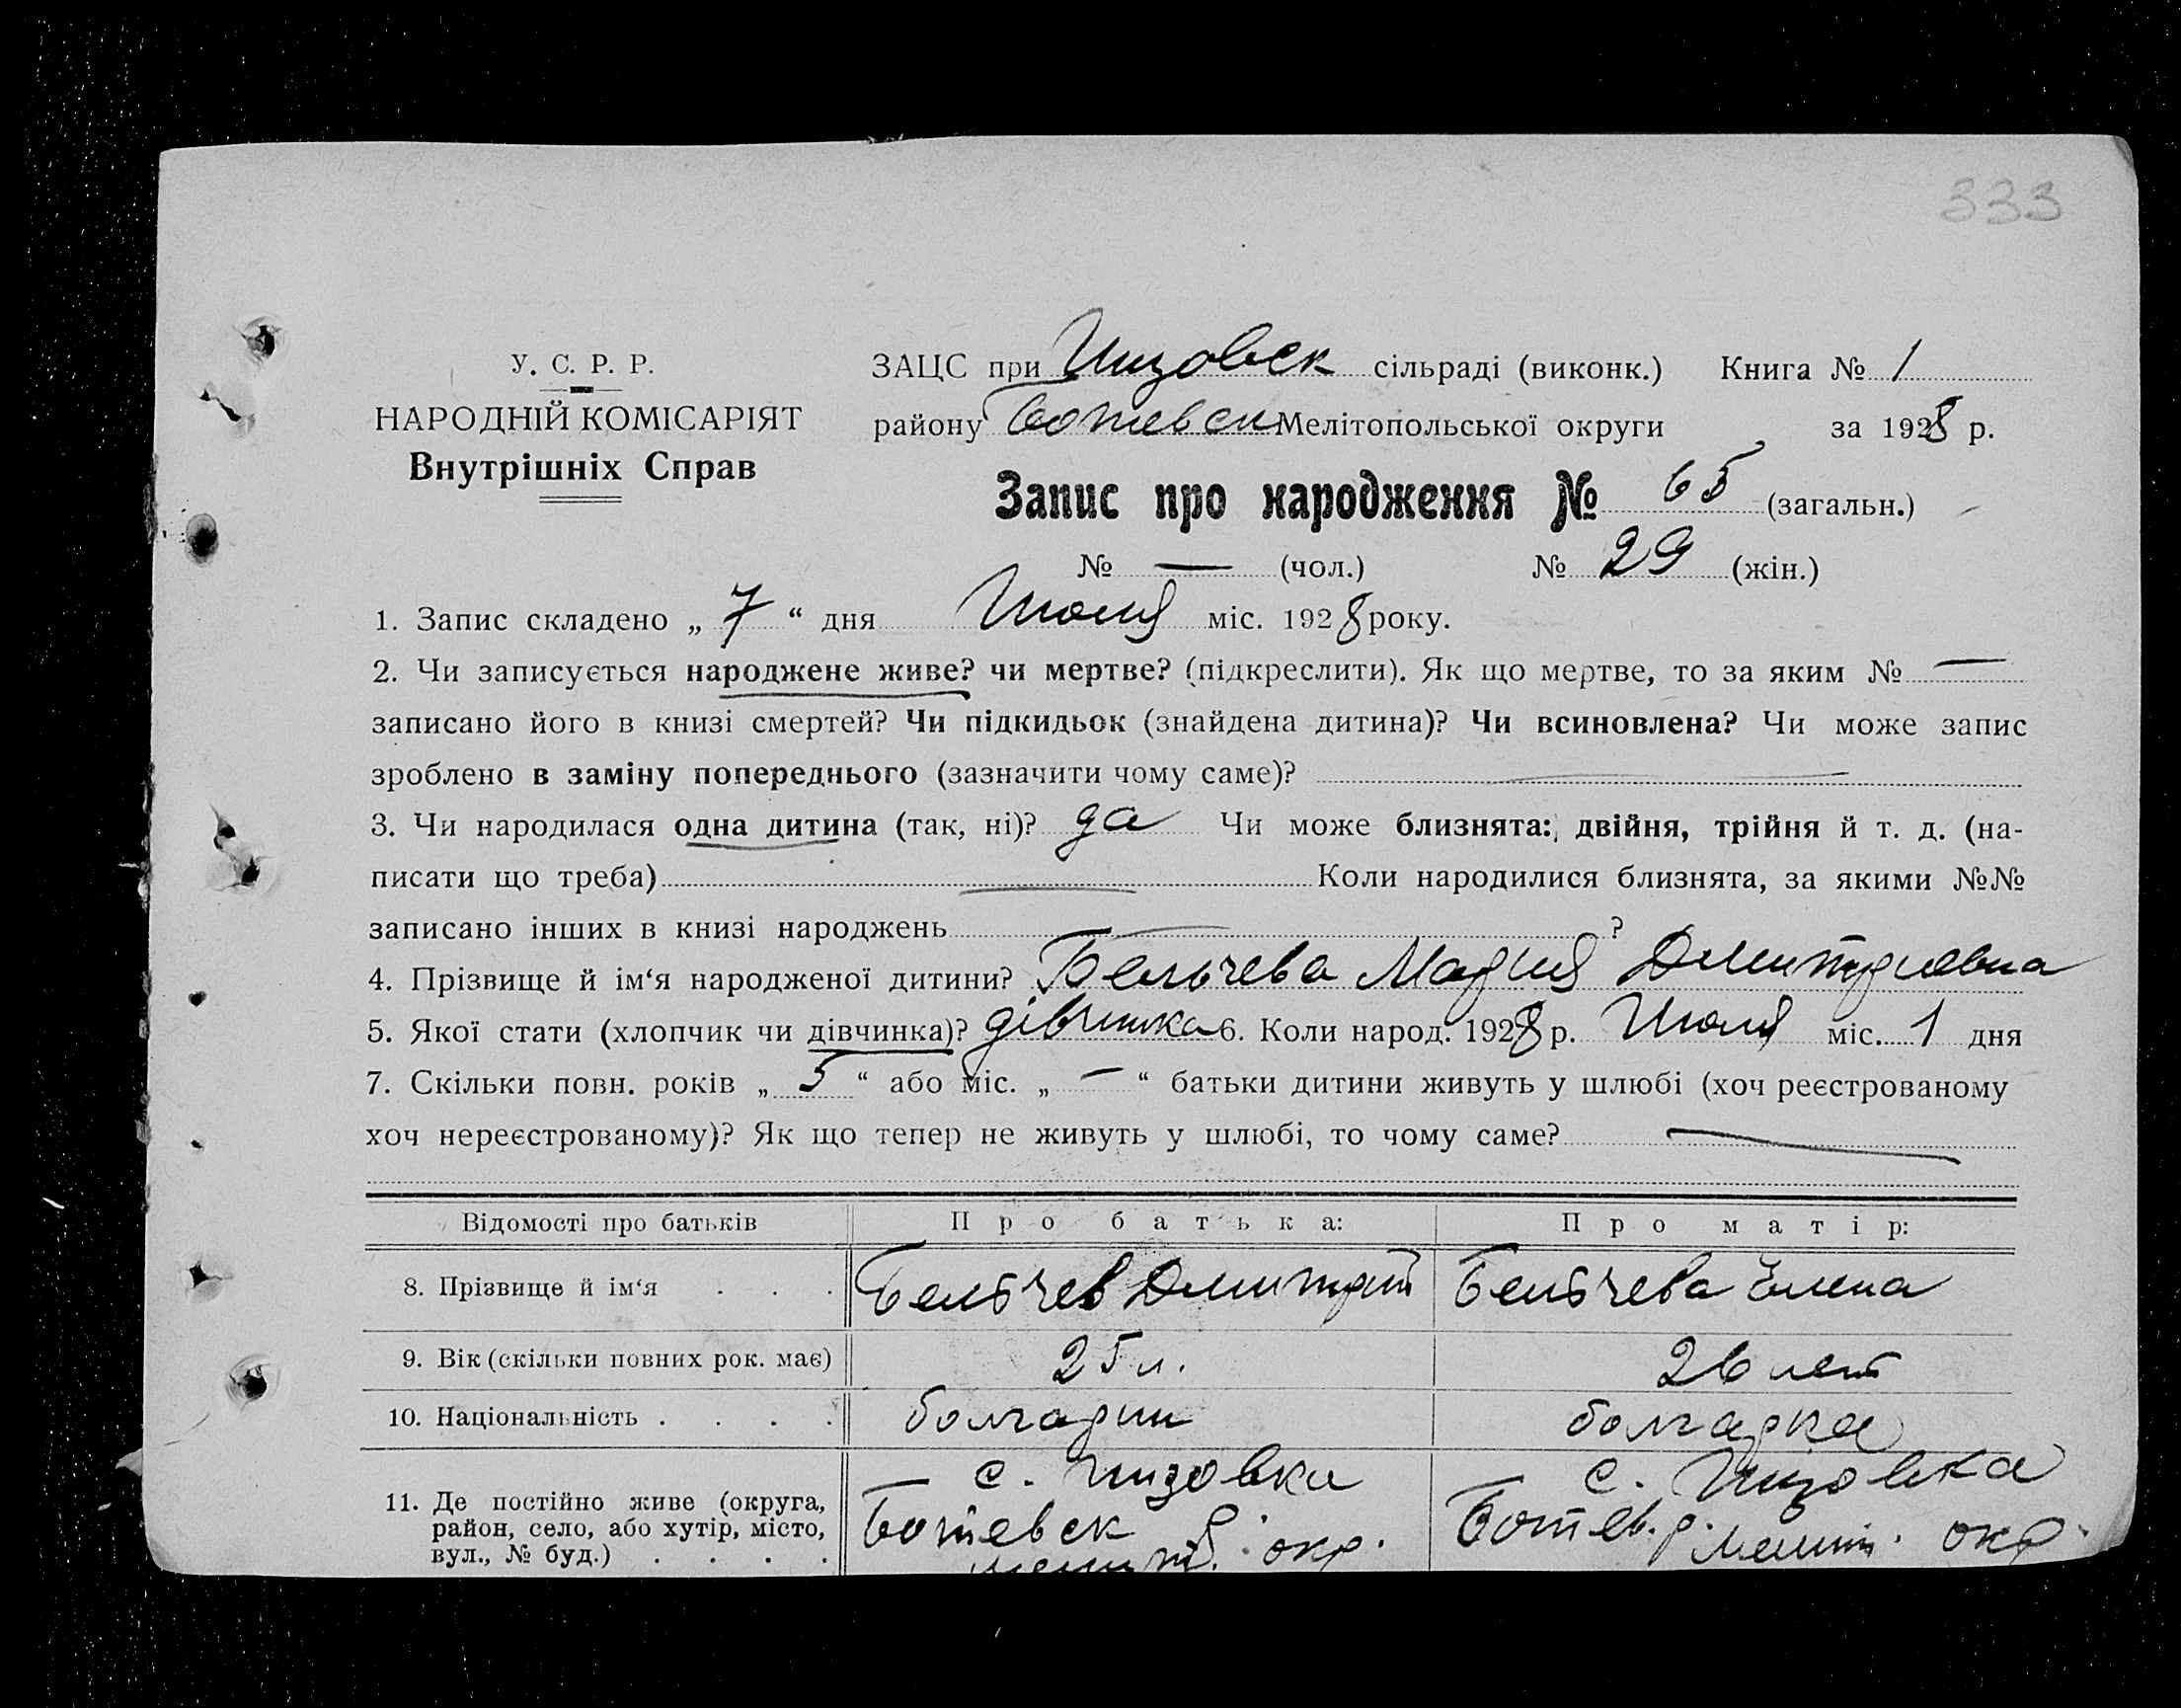 333
У. С. Р. Р.
НАРОДНІЙ КОМІСАРІЯТ
Внутрішніх Справ
ЗАЦС при Инзовск сільраді (виконк.) Книга № 1
району Ботевск Мелітопольської округи за 1928 р.
Запис про народження № 65 (загальн.)
№ — (чол.) № 29 (жін.)
1. Запис складено „ 7 “ дня Июля міс. 1928 року.
2. Чи записується народжене живе? чи мертве? (підкреслити). Як що мертве, то за яким № —
записано його в книзі смертей? Чи підкидьок (знайдена дитина)? Чи всиновлена? Чи може запис
зроблено в заміну попереднього (зазначити чому саме)? —
3. Чи народилася одна дитина (так, ні)? да Чи може близнята: двійня, трійня й т. д. (на-
писати що треба) — Коли народилися близнята, за якими №№
записано інших в книзі народжень — ?
4. Прізвище й ім‘я народженої дитини? Бельчева Мария Дмитриевна
5. Якої стати (хлопчик чи дівчинка)? дівчинка 6. Коли народ. 1928 р. Июля міс. 1 дня
7. Скільки повн. років „ 5 “ або міс. „ — “ батьки дитини живуть у шлюбі (хоч реєстрованому
хоч нереєстрованому)? Як що тепер не живуть у шлюбі, то чому саме? —
Відомості про батьків Про батька: Про матір:
8. Прізвище й ім‘я . . . Бельчев Дмитрий Бельчева Елена
9. Вік (скільки повних рок. має) 25 л. 26 лет
10. Національність . . . . болгарин болгарка
11. Де постійно живе (округа, с. Инзовка с. Инзовка
район, село, або хутір, місто, Ботевск Ботев. р.
вул., № буд.) . . . . Мелит. окр. Мелит. окр.